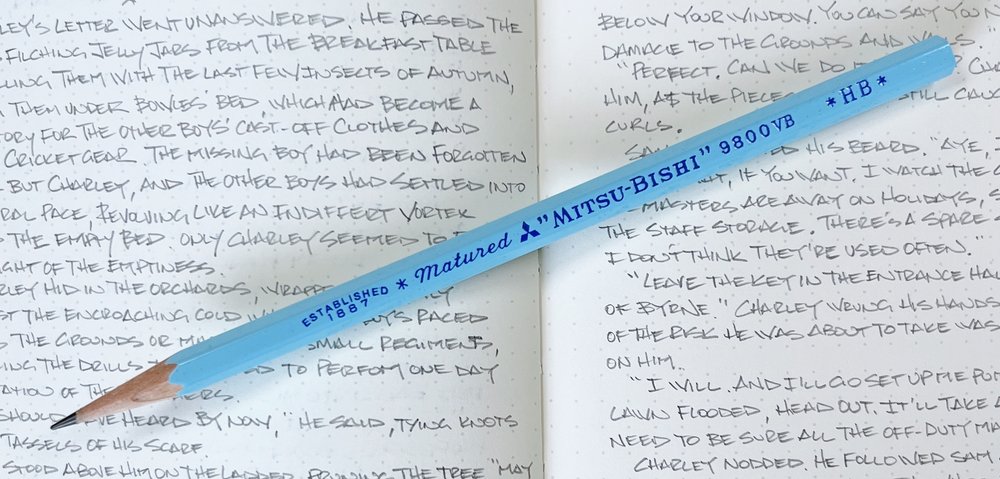 LEY'S LETTER WENT UNANSWERED. HE PASSED THE
FILCHING JELLY JARS FROM THE BREAKFAST TABLE
LING THEM WITH THE LAST FEW INSECTS OF AUTUMN,
THEM UNDER BOWLES' BED, WHICH HAD BECOME A
TORY FOR THE OTHER BOYS' CAST-OFF CLOTHES AND
CRICKET GEAR. THE MISSING BOY HAD BEEN FORGOTTEN
BUT CHARLEY, AND THE OTHER BOYS HAD SETTLED INTO
RAL PACE, REVOLVING LIKE AN INDIFFERT VORTEX
THE EMPTY BED. ONLY CHARLEY SEEMED TO
IGHT OF THE EMPTINESS.
LEY HID IN THE ORCHARDS, WRAPPE
ST THE ENCROACHING COLD
PACED
THE GROUNDS OR SMALL REGIMENTS,
ING THE DRILLS TO PERFOM ONE DAY
ATION OF THE ERS.
SHOULD HEARD BY NOW," HE SAID, TYING KNOTS
TASSELS OF HIS SCARF.
STOOD ABOVE HIM ON THE LADDER, PRUNING THE TREE "MAY
BELOW YOUR WINDOW. YOU CAN SAY YOU
DAMAGE TO THE GROUNDS AND
"PERFECT. CAN WE DO
HIM, AS THE PIECES STILL
CURLS.
HIS BEARD. "AYE,
IF YOU WANT. I WATCH THE
-MASTERS ARE AWAY ON HOLIDAYS,
THE STAFF STORAGE. THERE'S A SPARE
I DON'T THINK THEY'RE USED OFTEN."
"LEAVE THE KEY IN THE ENTRANCE HA
OF BYRNE." CHARLEY WRUNG HIS HANDS
OF THE RISK HE WAS ABOUT TO TAKE WAS
ON HIM.
"I WILL. AND I'LL GO SET UP ME PUM
LAWN FLOODED, HEAD OUT. IT'LL TAKE A
NEED TO BE SURE ALL THE OFF-DUTY MA
CHARLEY NODDED. HE FOLLOWED SAM
ESTABLISHED
1887
* Matured "MITSU-BISHI" 9800VB * HB *